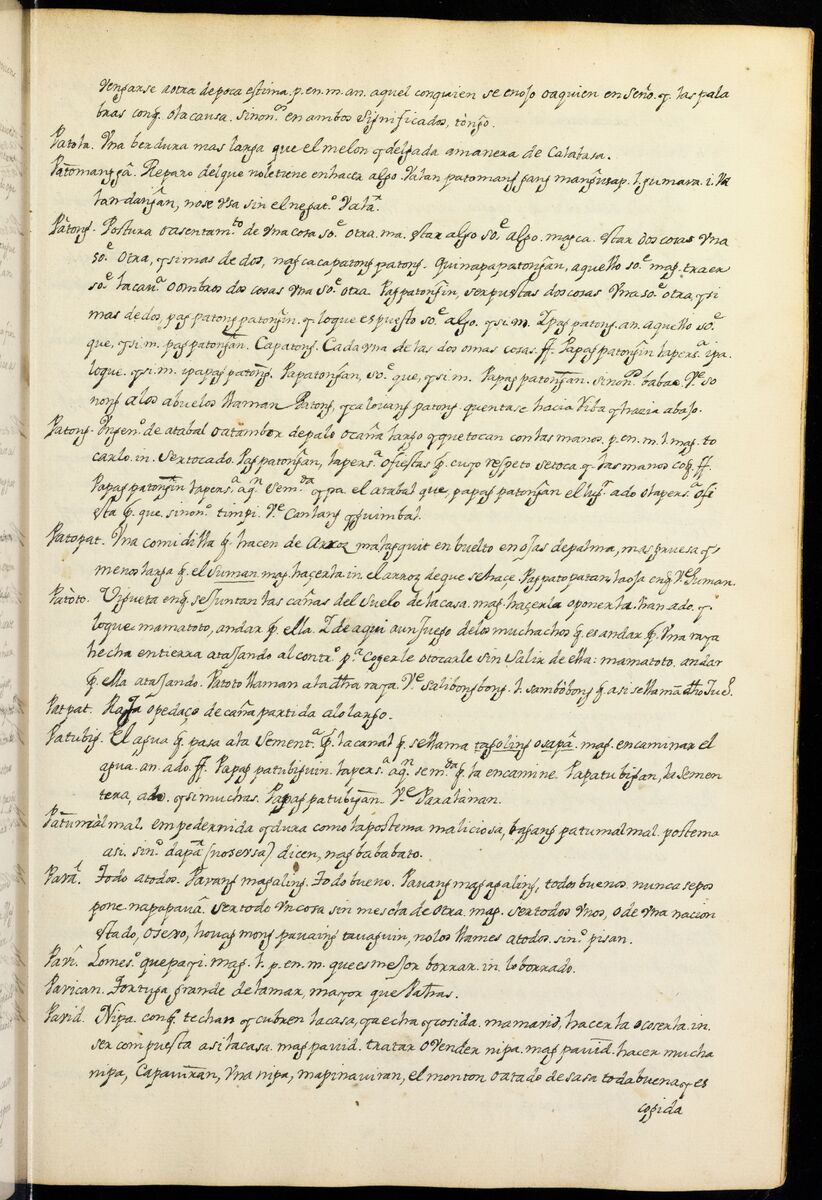 Vengarse aotra depoca estima. p. en. m. an. aquel conquien se enojo oaquien enseñ.o y. las pala
bras conq. olacausa. sinon.o en ambos significados, tongo.
Patola. Vna berdura mas larga que el melon y delgada amanera de Calabasa.
Patomanggã. Reparo delque noletiene enhacer algo. Valan patomang gang
tandangan, nose vsa sin el negat.o Valã.
Pàtong. Postura oasentam.to de vna cosa so.e otra. ma. estar algo so.e algo. magca. estar dos cosas vna
so.e otra, y si mas de dos, nagcacapatong patong. quinapapatongan, aquello so.e mag. traer
so.e la caue.a oombros dos cosas vna so.e otra. Pagpatongin, serpuestas dos cosas vna so.e otra y si
mas dedos, pag patong patongin. y loque espuesto so.e algo. y si. m. Ypag patong. an. aquello so.e
que, y si. m. pag patongan. Capatong. Cada vna de las dos omas cosas. ff. Papag patongin lapers.a ipa.
loque. y si. m. ipapag patong. Papatongan, so.e que, y si. m. Papag patongan. sinon.o babao. V.e so
nong alos abuelos llaman Patong, y calouang patong. quentase hacia riba y hazia abajo.
Patong. Ynsen.o de atabal oatambor depalo ocaña largo y que tocan con las manos. p. en. m. l. mag. to
carlo. in. ser tocado. Pag patongan, lapers.a ofiestas q. cuyo respeto setoca y las manos coq. ff.
Papag patongin lapers.a aq.n sem.da y pa el atabal que, papag patongan el lug.r ado olapers.a ofi
esta q. que. sinon.o timpi. V.e Canlang y guimbal.
Patopat. Vna comidilla q. hacen de Arroz malagquit en buelto en ojas depalma, mas gruesa y
menos larga q. el suman. mag. haçerla. in. el arroz de que se haçe. Pagpatopatan, la oja enq. V.e suman.
Patòto. Vigueta enq. se juntan las cañas del suelo de la casa. mag. haçerla oponerla. han. ado. y
loque. mamatoto, andar p. ella. Y de aqui aun juego delos muchachos q. es andar p. vna raya
hecha entierra atajando al contr.o p.a Cogerle otocarle sin salir de ella: mamatoto. andar
p. ella atajando. Patoto llaman ala dha raya. V.e salibongbong. l. sambòbong q. asi se llamã dho Jue.o
Patpat. Raja opedaço de caña partida alo largo.
Patubig. El agua q. pasa ala sement.a p. la canal q. se llama tagoling osapã. mag. encaminar el
agua. an. ado. ff. Papag patubiguin. lapers.a aq.n sem.da q. la encamine. Papatubigan, la semen
tera, ado. y si muchas. Papag patubigan. V.e Paralànan.
Patumàlmal. empedernida y dura como lapostema maliciosa, bagang patumalmal. postema
asi. sin.o dapã (nosersa) dicen, nag bababato.
Pavã. Todo atodos. Pavang magaling. Todo bueno. Pavang magagaling, todos buenos. nunca sepos
pone. napapavã. ser todo vn cosa sin mescla de otra. mag. ser todos vnos, o de vna nacion
estado, osexo, houag mong pavaing tavaguin, no los llames atodos. sin.o pisan.
Pavi. Lo mes.o que payi. mag. l. p. en. m. que es mejor borrar. in. lo borrado.
Pavican. Tortuga grande de la mar, mayor que
Pavid. Nipa. conq. techan y cubren lacasa, ya echa y cosida. mamavid, hacerla o coserla. in.
ser compuesta asi lacasa. mag pavid. tratar o vender nipa. mag pavid. hacer mucha
nipa, Capaviran, vna nipa, mapinaviran, el monton oatado de sasa toda buena y es
cogida